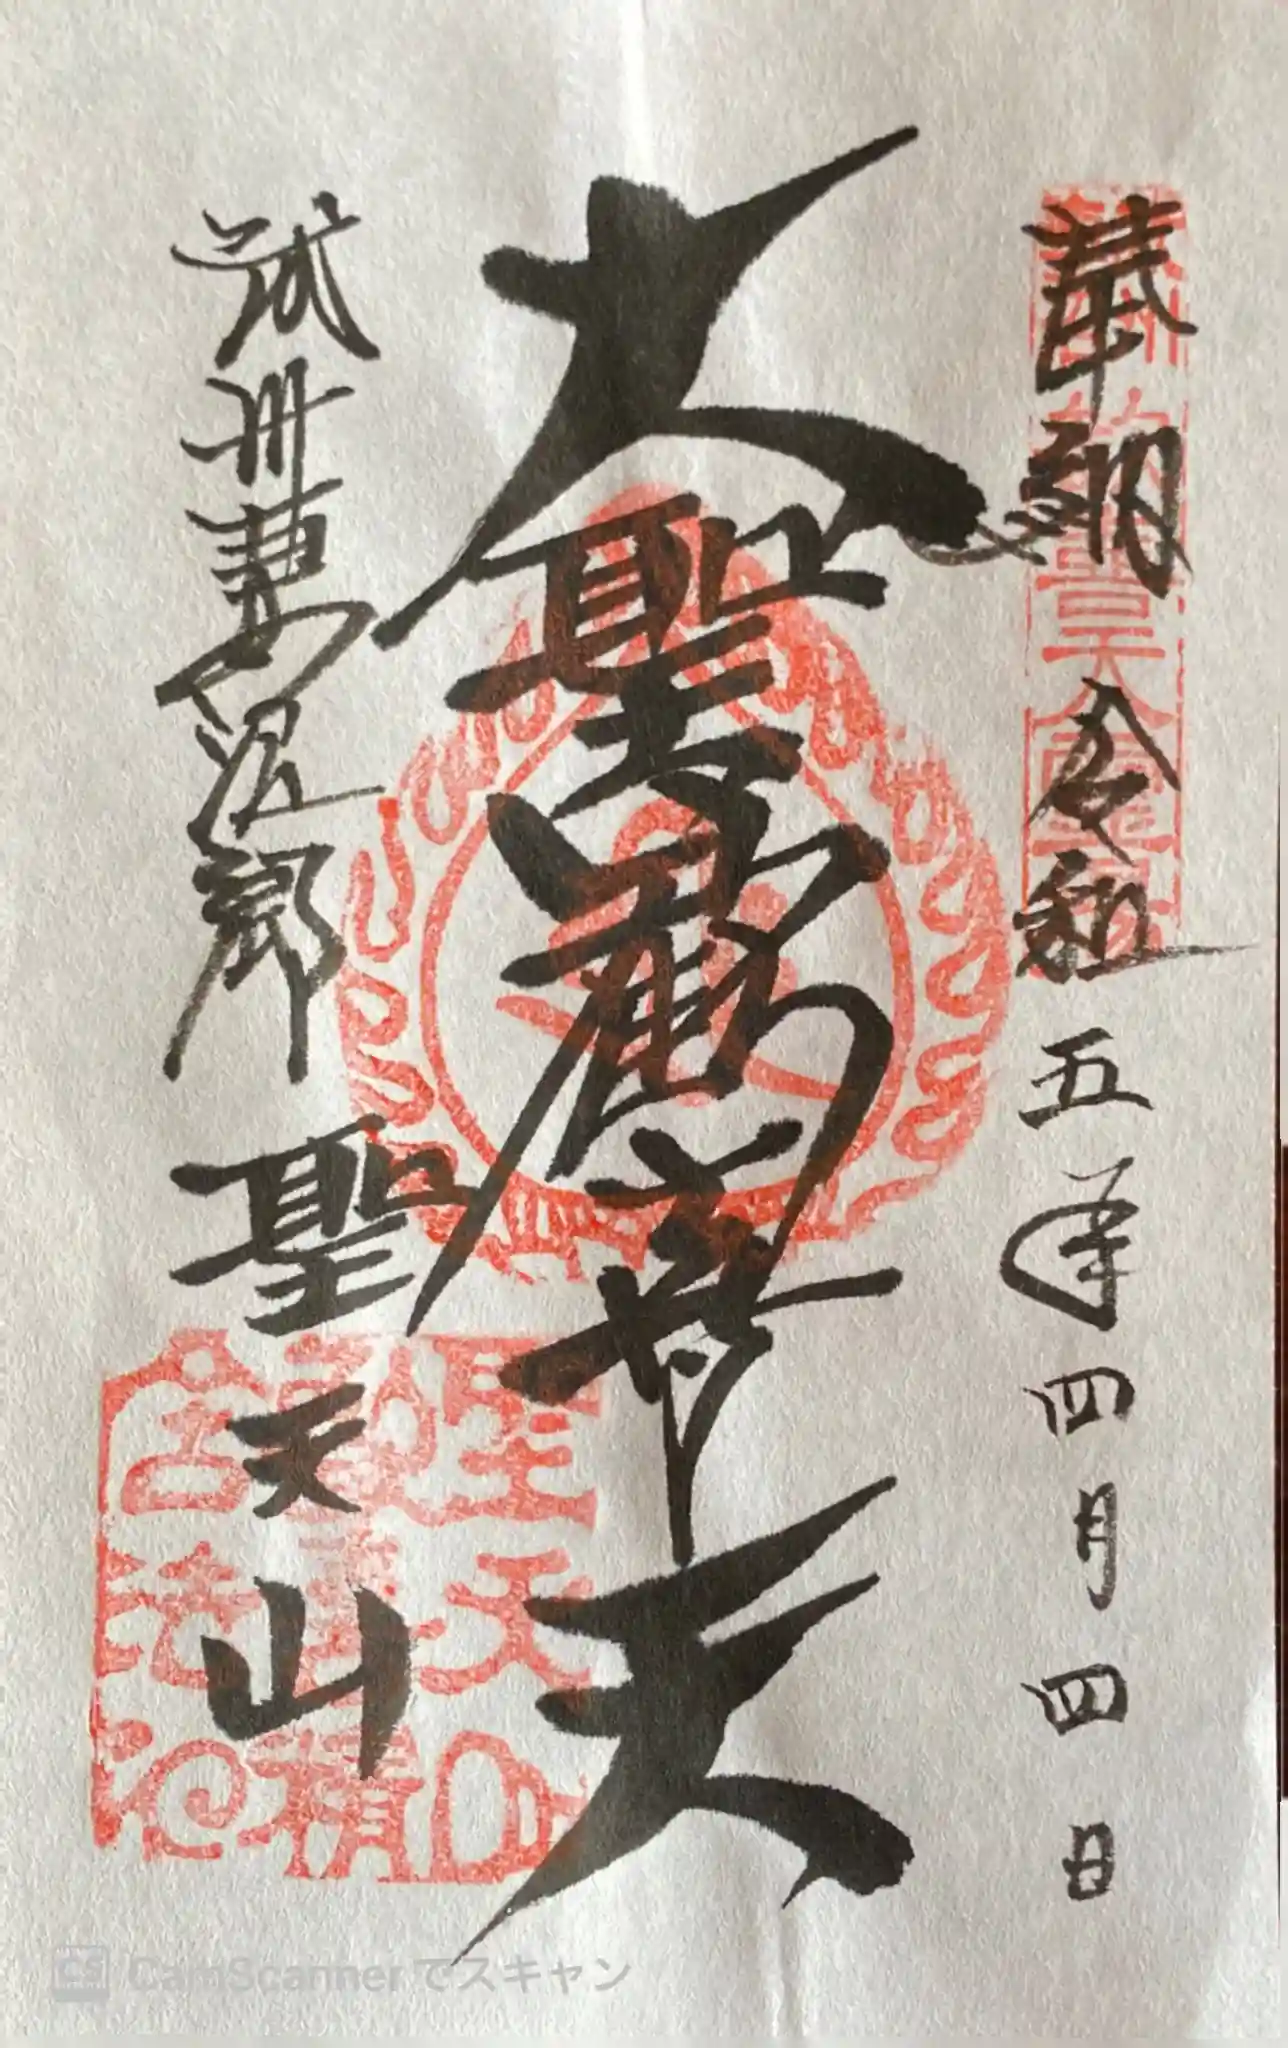 奉納 令和五年四月四日
大聖歓喜天
武州妻沼郷 聖天山
CamScanner でスキャン